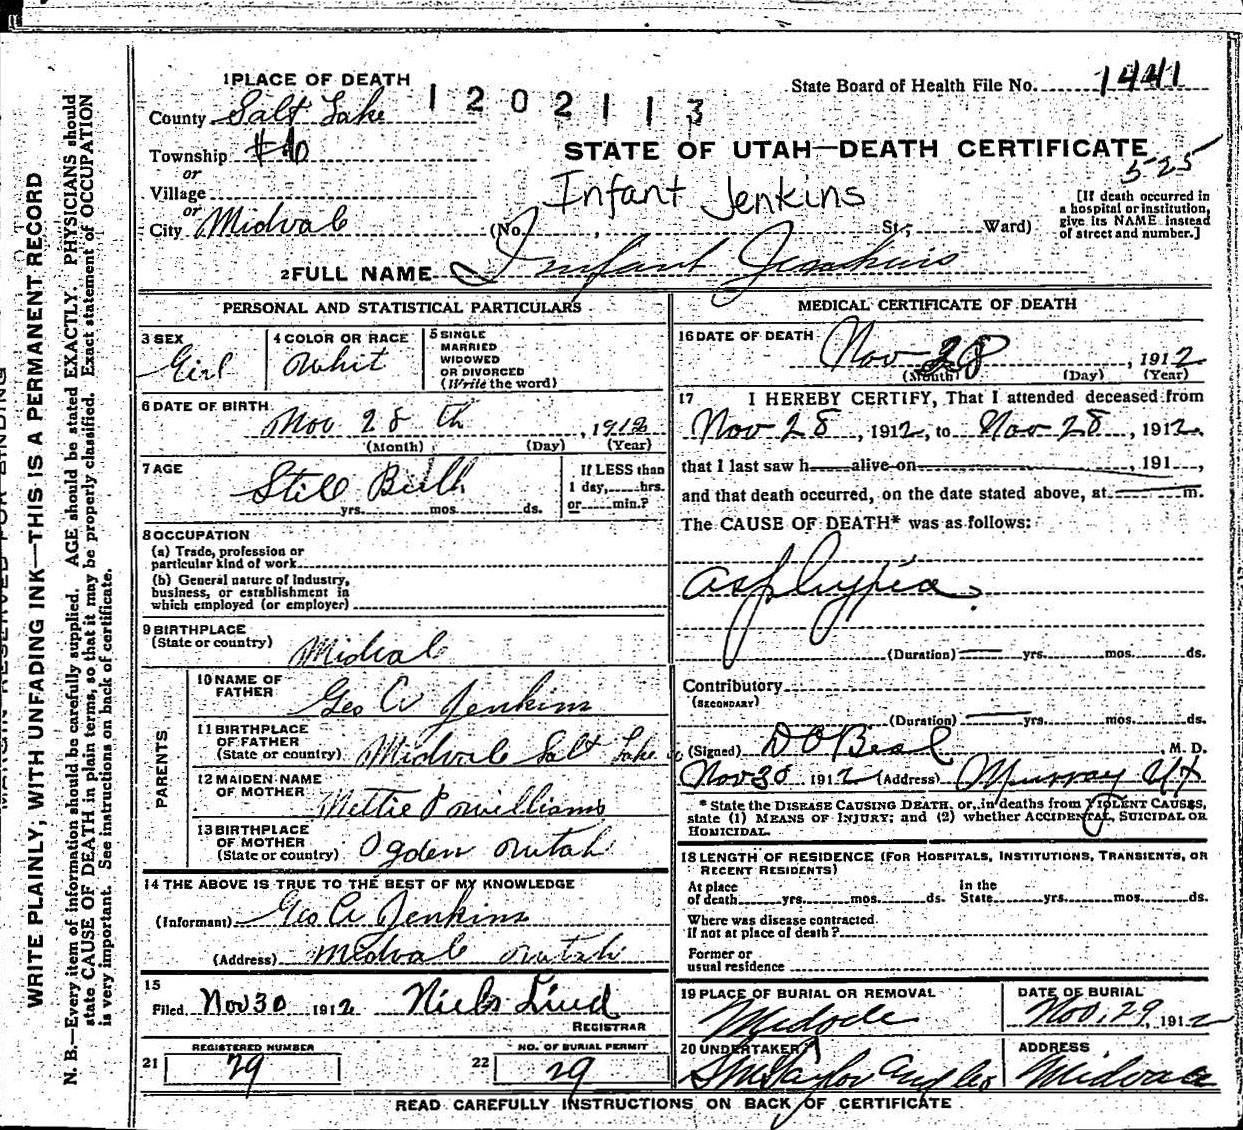 1 PLACE OF DEATH
1202113
State Board of Health File No. 1441
County Salt Lake
Township #10
STATE OF UTAH—DEATH CERTIFICATE
5-25
or
Village
Infant Jenkins
[If death occurred in a hospital or institution, give its NAME instead of street and number.]
or
City Midvale (No. , St.; Ward)
2 FULL NAME Infant Jenkins
PERSONAL AND STATISTICAL PARTICULARS
3 SEX Girl
4 COLOR OR RACE Whit
5 SINGLE MARRIED WIDOWED OR DIVORCED (Write the word)
6 DATE OF BIRTH Nov 28 th , 1912
(Month) (Day) (Year)
7 AGE Still Birth
yrs. mos. ds.
If LESS than 1 day, hrs. or min.?
8 OCCUPATION
(a) Trade, profession or particular kind of work
(b) General nature of Industry, business, or establishment in which employed (or employer)
9 BIRTHPLACE
(State or country) Midval
PARENTS
10 NAME OF FATHER Geo A Jenkins
11 BIRTHPLACE OF FATHER (State or country) Midvale Salt Lake
12 MAIDEN NAME OF MOTHER Mettie P williams
13 BIRTHPLACE OF MOTHER (State or country) Ogden utah
14 THE ABOVE IS TRUE TO THE BEST OF MY KNOWLEDGE
(Informant) Geo A Jenkins
(Address) Midval utah
15
Filed Nov 30 1912 Niels Lind
REGISTRAR
REGISTERED NUMBER
21 29
NO. OF BURIAL PERMIT
22 29
MEDICAL CERTIFICATE OF DEATH
16 DATE OF DEATH Nov 28 , 1912
(Month) (Day) (Year)
17 I HEREBY CERTIFY, That I attended deceased from
Nov 28 , 1912, to Nov 28 , 1912
that I last saw h alive on , 191 ,
and that death occurred, on the date stated above, at m.
The CAUSE OF DEATH* was as follows:
asphyxia
(Duration) yrs. mos. ds.
Contributory
(SECONDARY)
(Duration) yrs. mos. ds.
(Signed) D O Beal , M. D.
Nov 30 1912 (Address) Murray Ut
* State the DISEASE CAUSING DEATH, or, in deaths from VIOLENT CAUSES,
state (1) MEANS OF INJURY; and (2) whether ACCIDENTAL, SUICIDAL OR
HOMICIDAL.
18 LENGTH OF RESIDENCE (FOR HOSPITALS, INSTITUTIONS, TRANSIENTS, OR
RECENT RESIDENTS)
At place of death yrs. mos. ds. In the State yrs. mos. ds.
Where was disease contracted
If not at place of death?
Former or
usual residence
19 PLACE OF BURIAL OR REMOVAL
DATE OF BURIAL
Midvale
Nov. 29, 1912
20 UNDERTAKER
ADDRESS
Midvale
READ CAREFULLY INSTRUCTIONS ON BACK OF CERTIFICATE
WRITE PLAINLY, WITH UNFADING INK—THIS IS A PERMANENT RECORD
N. B.—Every item of information should be carefully supplied. AGE should be stated EXACTLY. PHYSICIANS should
state CAUSE OF DEATH in plain terms, so that it may be properly classified. Exact statement of OCCUPATION
is very important. See instructions on back of certificate.